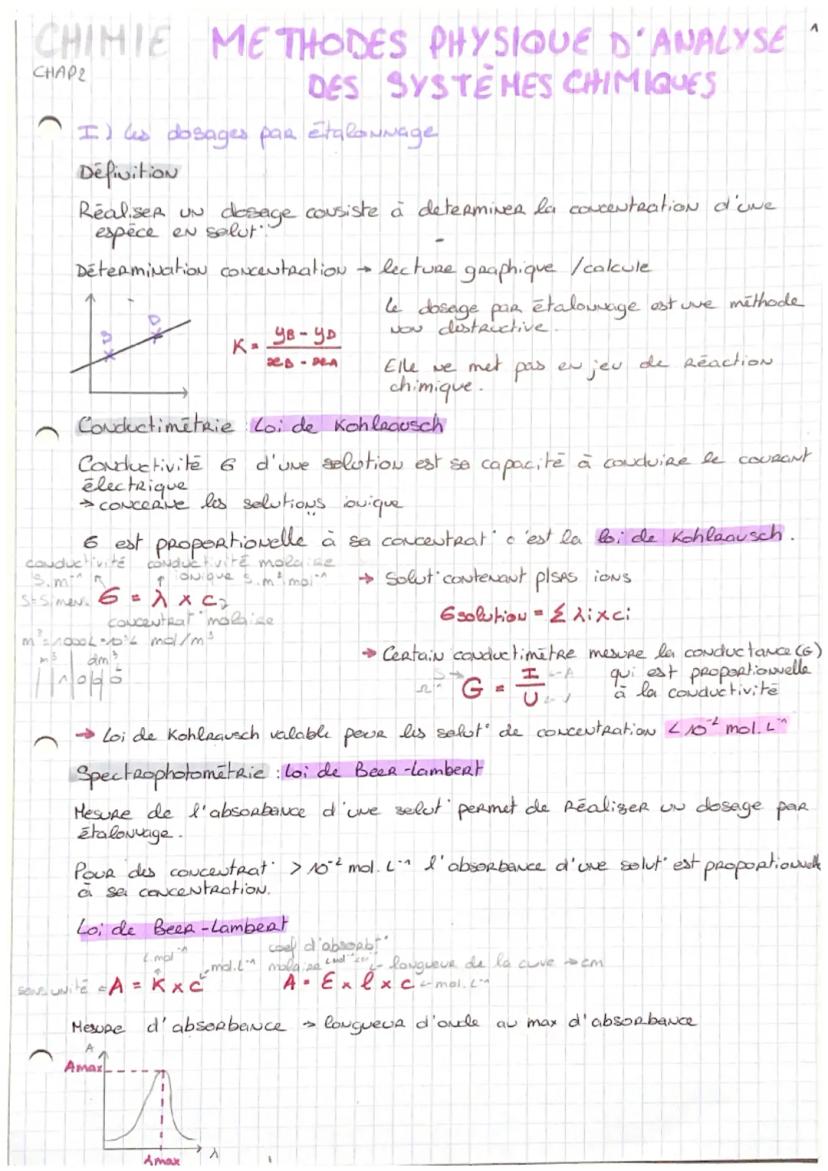 CHIMIE METHODES PHYSIQUE D'ANALYSE 1
CHAP2 DES SYSTÈMES CHIMIQUES
I) Les dosages par étalonnage
Définition
Réaliser un dosage consiste à determiner la concentration d'une
espèce en solut°.
Détermination concentration → lecture graphique / calcule
Le dosage par étalonnage est une méthode
non destructive.
B D
K = yB - yD
xB - xA
Elle ne met pas en jeu de Réaction
chimique.
Conductimétrie : Loi de Kohlraousch
Conductivité σ d'une solution est sa capacité à conduire le courant
électrique
→ concerne les solutions ionique
σ est proportionelle à sa concentrat° c'est la loi de Kohlraousch.
conductivité conductivité molaire
S.m⁻¹ ionique S.m².mol⁻¹
→ Solut° contenant plsrs ions
S=Simens σ = λ x c
concentrat° molaire
σsolution = Σ λi x ci
m³=1000L=10³L mol/m³
m³ dm³
1 0 0 0
→ Certain conductimètre mesure la conductance (G)
qui est proportionnelle
à la conductivité
S →
Ω⁻¹ G = I ← A
U ← V
→ Loi de Kohlrausch valable pour les solut° de concentration < 10⁻² mol.L⁻¹
Spectrophotométrie : Loi de Beer-Lambert
Mesure de l'absorbance d'une solut° permet de Réaliser un dosage par
étalonnage.
Pour des concentrat° > 10⁻² mol.L⁻¹ l'absorbance d'une solut° est proportionnelle
à sa concentration.
Loi de Beer-Lambert
L.mol⁻¹ coef d'absorbt°
mol.L⁻¹ molaire L.mol⁻¹.cm⁻¹ longueur de la cuve → cm
sans unité ← A = K x c A = ε x l x c ← mol.L⁻¹
Mesure d'absorbance → longueur d'onde au max d'absorbance
A
Amax
λmax λ